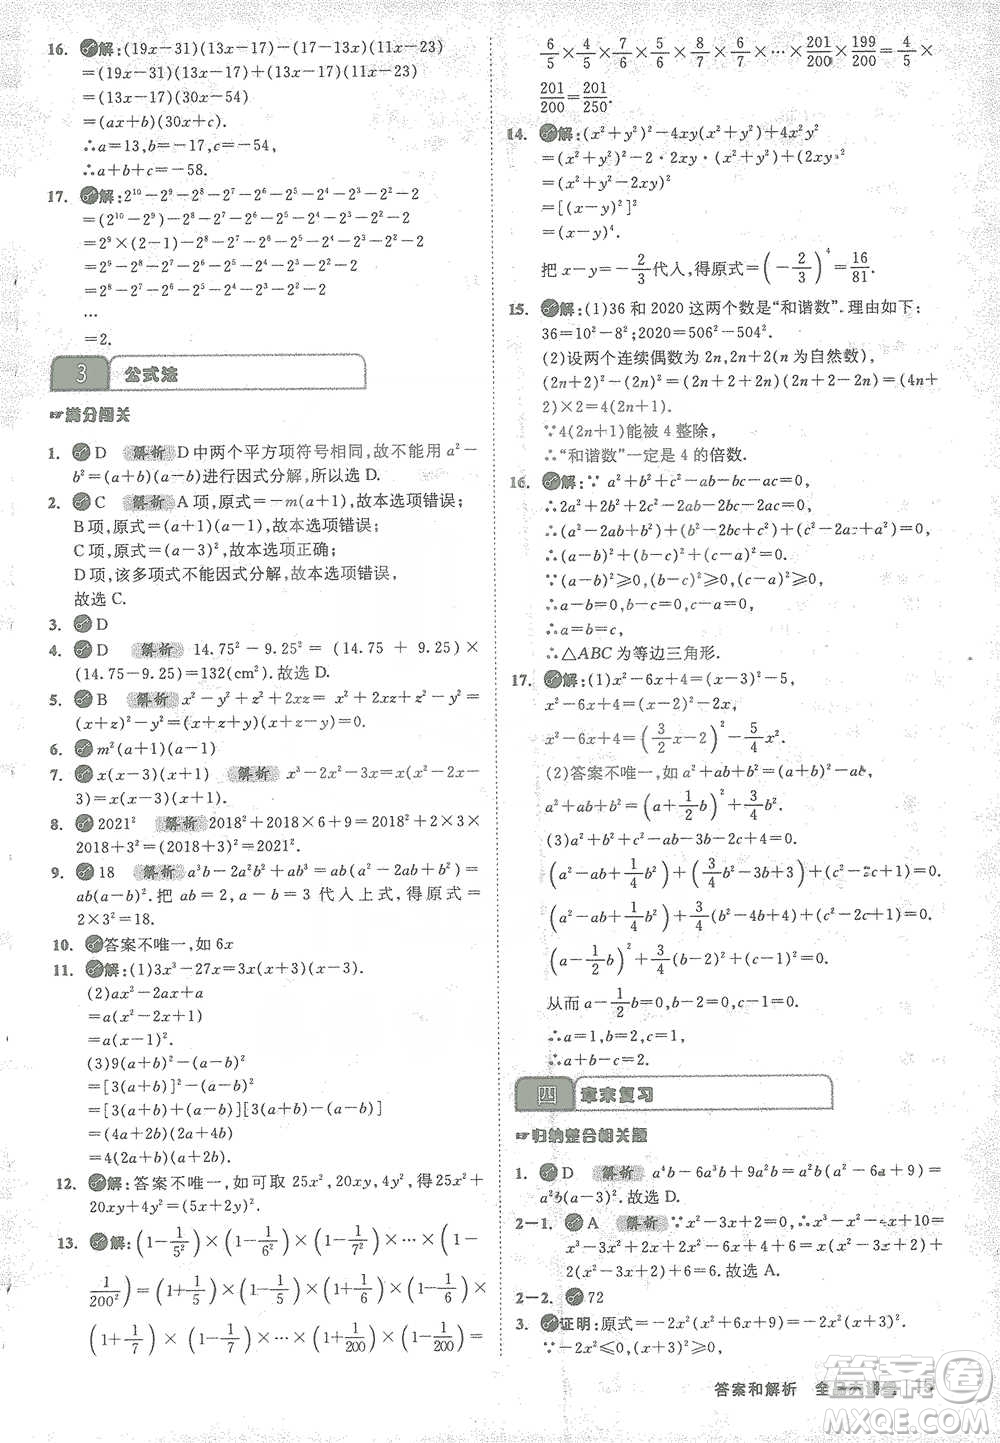 16. 解:(19x-31)(13x-17)-(17-13x)(11x-23)
=(19x-31)(13x-17)+(13x-17)(11x-23)
=(13x-17)(30x-54)
=(ax+b)(30x+c).
∴a=13,b=-17,c=-54.
∴a+b+c=-58.
17. 解:2¹⁰-2⁹-2⁸-2⁷-2⁶-2⁵-2⁴-2³-2²-2
=(2¹⁰-2⁹)-2⁸-2⁷-2⁶-2⁵-2⁴-2³-2²-2
=2⁹×(2-1)-2⁸-2⁷-2⁶-2⁵-2⁴-2³-2²-2
=2⁹-2⁸-2⁷-2⁶-2⁵-2⁴-2³-2²-2
…
=2.
3 公式法
☞满分闯关
1. D 解析 D中两个平方项符号相同,故不能用a²-
b²=(a+b)(a-b)进行因式分解,所以选D.
2. C 解析 A项,原式=-m(a+1),故本选项错误;
B项,原式=(a+1)(a-1),故本选项错误;
C项,原式=(a-3)²,故本选项正确;
D项,该多项式不能因式分解,故本选项错误,
故选C.
3. D
4. D 解析 14.75²-9.25²=(14.75+9.25)×
(14.75-9.25)=132(cm²).故选D.
5. B 解析 x²-y²+z²+2xz=x²+2xz+z²-y²=
(x+z)²-y²=(x+y+z)(x-y+z).故选B.
6. m²(a+1)(a-1)
7. (x-3)(x+1) 解析 x²-3-2x=x²-2x-
3=(x-3)(x+1).
8. 2021² 解析 2018²+2018×6+9=2018²+2×3×
2018+3²=(2018+3)²=2021².
9. 18 解析 a³b-2a²b²+ab³=ab(a²-2ab+b²)=
ab(a-b)².把ab=2,a-b=3代入上式,得原式=
2×3²=18.
10. 答案不唯一,如6x
11. 解:(1)3x³-27x=3x(x+3)(x-3).
(2)ax²-2ax+a
=a(x²-2x+1)
=a(x-1)².
(3)9(a+b)²-(a-b)²
=[3(a+b)]²-(a-b)²
=[3(a+b)+(a-b)][3(a+b)-(a-b)]
=(4a+2b)(2a+4b)
=4(2a+b)(a+2b).
12. 解:答案不唯一,如可取25x²,20xy,4y²,得25x²+
20xy+4y²=(5x+2y)².
13. 解:(1-1/5²)×(1-1/6²)×(1-1/7²)×…×(1-
1/200²)=(1+1/5)×(1-1/5)×(1+1/6)×(1-1/6)×
(1+1/7)×(1-1/7)×…×(1+1/200)×(1-1/200)=
6/5×4/5×7/6×5/6×8/7×6/7×…×201/200×199/200=4/5×
201/200=201/250.
14. 解:(x²+y²)²-4xy(x²+y²)+4x²y²
=(x²+y²)²-2·2xy·(x²+y²)+(2xy)²
=(x²+y²-2xy)²
=[(x-y)²]²
=(x-y)⁴.
把x-y=-2/3代入,得原式=(-2/3)⁴=16/81.
15. 解:(1)36和2020这两个数是“和谐数”.理由如下:
36=10²-8²;2020=506²-504².
(2)设两个连续偶数为2n,2n+2(n为自然数),
∵(2n+2)²-(2n)²=(2n+2+2n)(2n+2-2n)=(4n+
2)×2=4(2n+1).
∵4(2n+1)能被4整除,
∴“和谐数”一定是4的倍数.
16. 解:∵a²+b²+c²-ab-bc-ac=0,
∴2a²+2b²+2c²-2ab-2bc-2ac=0,
∴(a²-2ab+b²)+(b²-2bc+c²)+(a²-2ac+c²)=0,
∴(a-b)²+(b-c)²+(a-c)²=0.
∵(a-b)²≥0,(b-c)²≥0,(a-c)²≥0,
∴a-b=0,b-c=0,a-c=0,
∴a=b=c,
∴△ABC为等边三角形.
17. 解:(1)x²-6x+4=(x-3)²-5,
x²-6x+4=(x-2)²-2x,
x²-6x+4=(3/2x-2)²-5/4x².
(2)答案不唯一,如a²+ab+b²=(a+b)²-ab,
a²+ab+b²=(a+1/2b)²+3/4b².
(3)a²+b²+c²-ab-3b-2c+4=0,
(a²-ab+1/4b²)+(3/4b²-3b+3)+(c²-2c+1)=0,
(a²-ab+1/4b²)+3/4(b²-4b+4)+(c²-2c+1)=0,
(a-1/2b)²+3/4(b-2)²+(c-1)²=0,
从而a-1/2b=0,b-2=0,c-1=0,
∴a=1,b=2,c=1,
∴a+b+c=4.
四 章末复习
☞归纳整合相关题
1. D 解析 a⁴b-6a³b+9a²b=a²b(a²-6a+9)=
a²b(a-3)².故选D.
2-1. A 解析 ∵x²-3x-1=0,∴x²-3x=1,
∴x³-3x²-x+9=x(x²-3x)-x+9=x-x+
9=9.故选A.
2-2. 72
3. 证明:原式=-2x²(x²-6x+9)=-2x²(x-3)²,
∵-2x²≤0,(x-3)²≥0,
答案和解析 15
答案圈
MXQE.COM